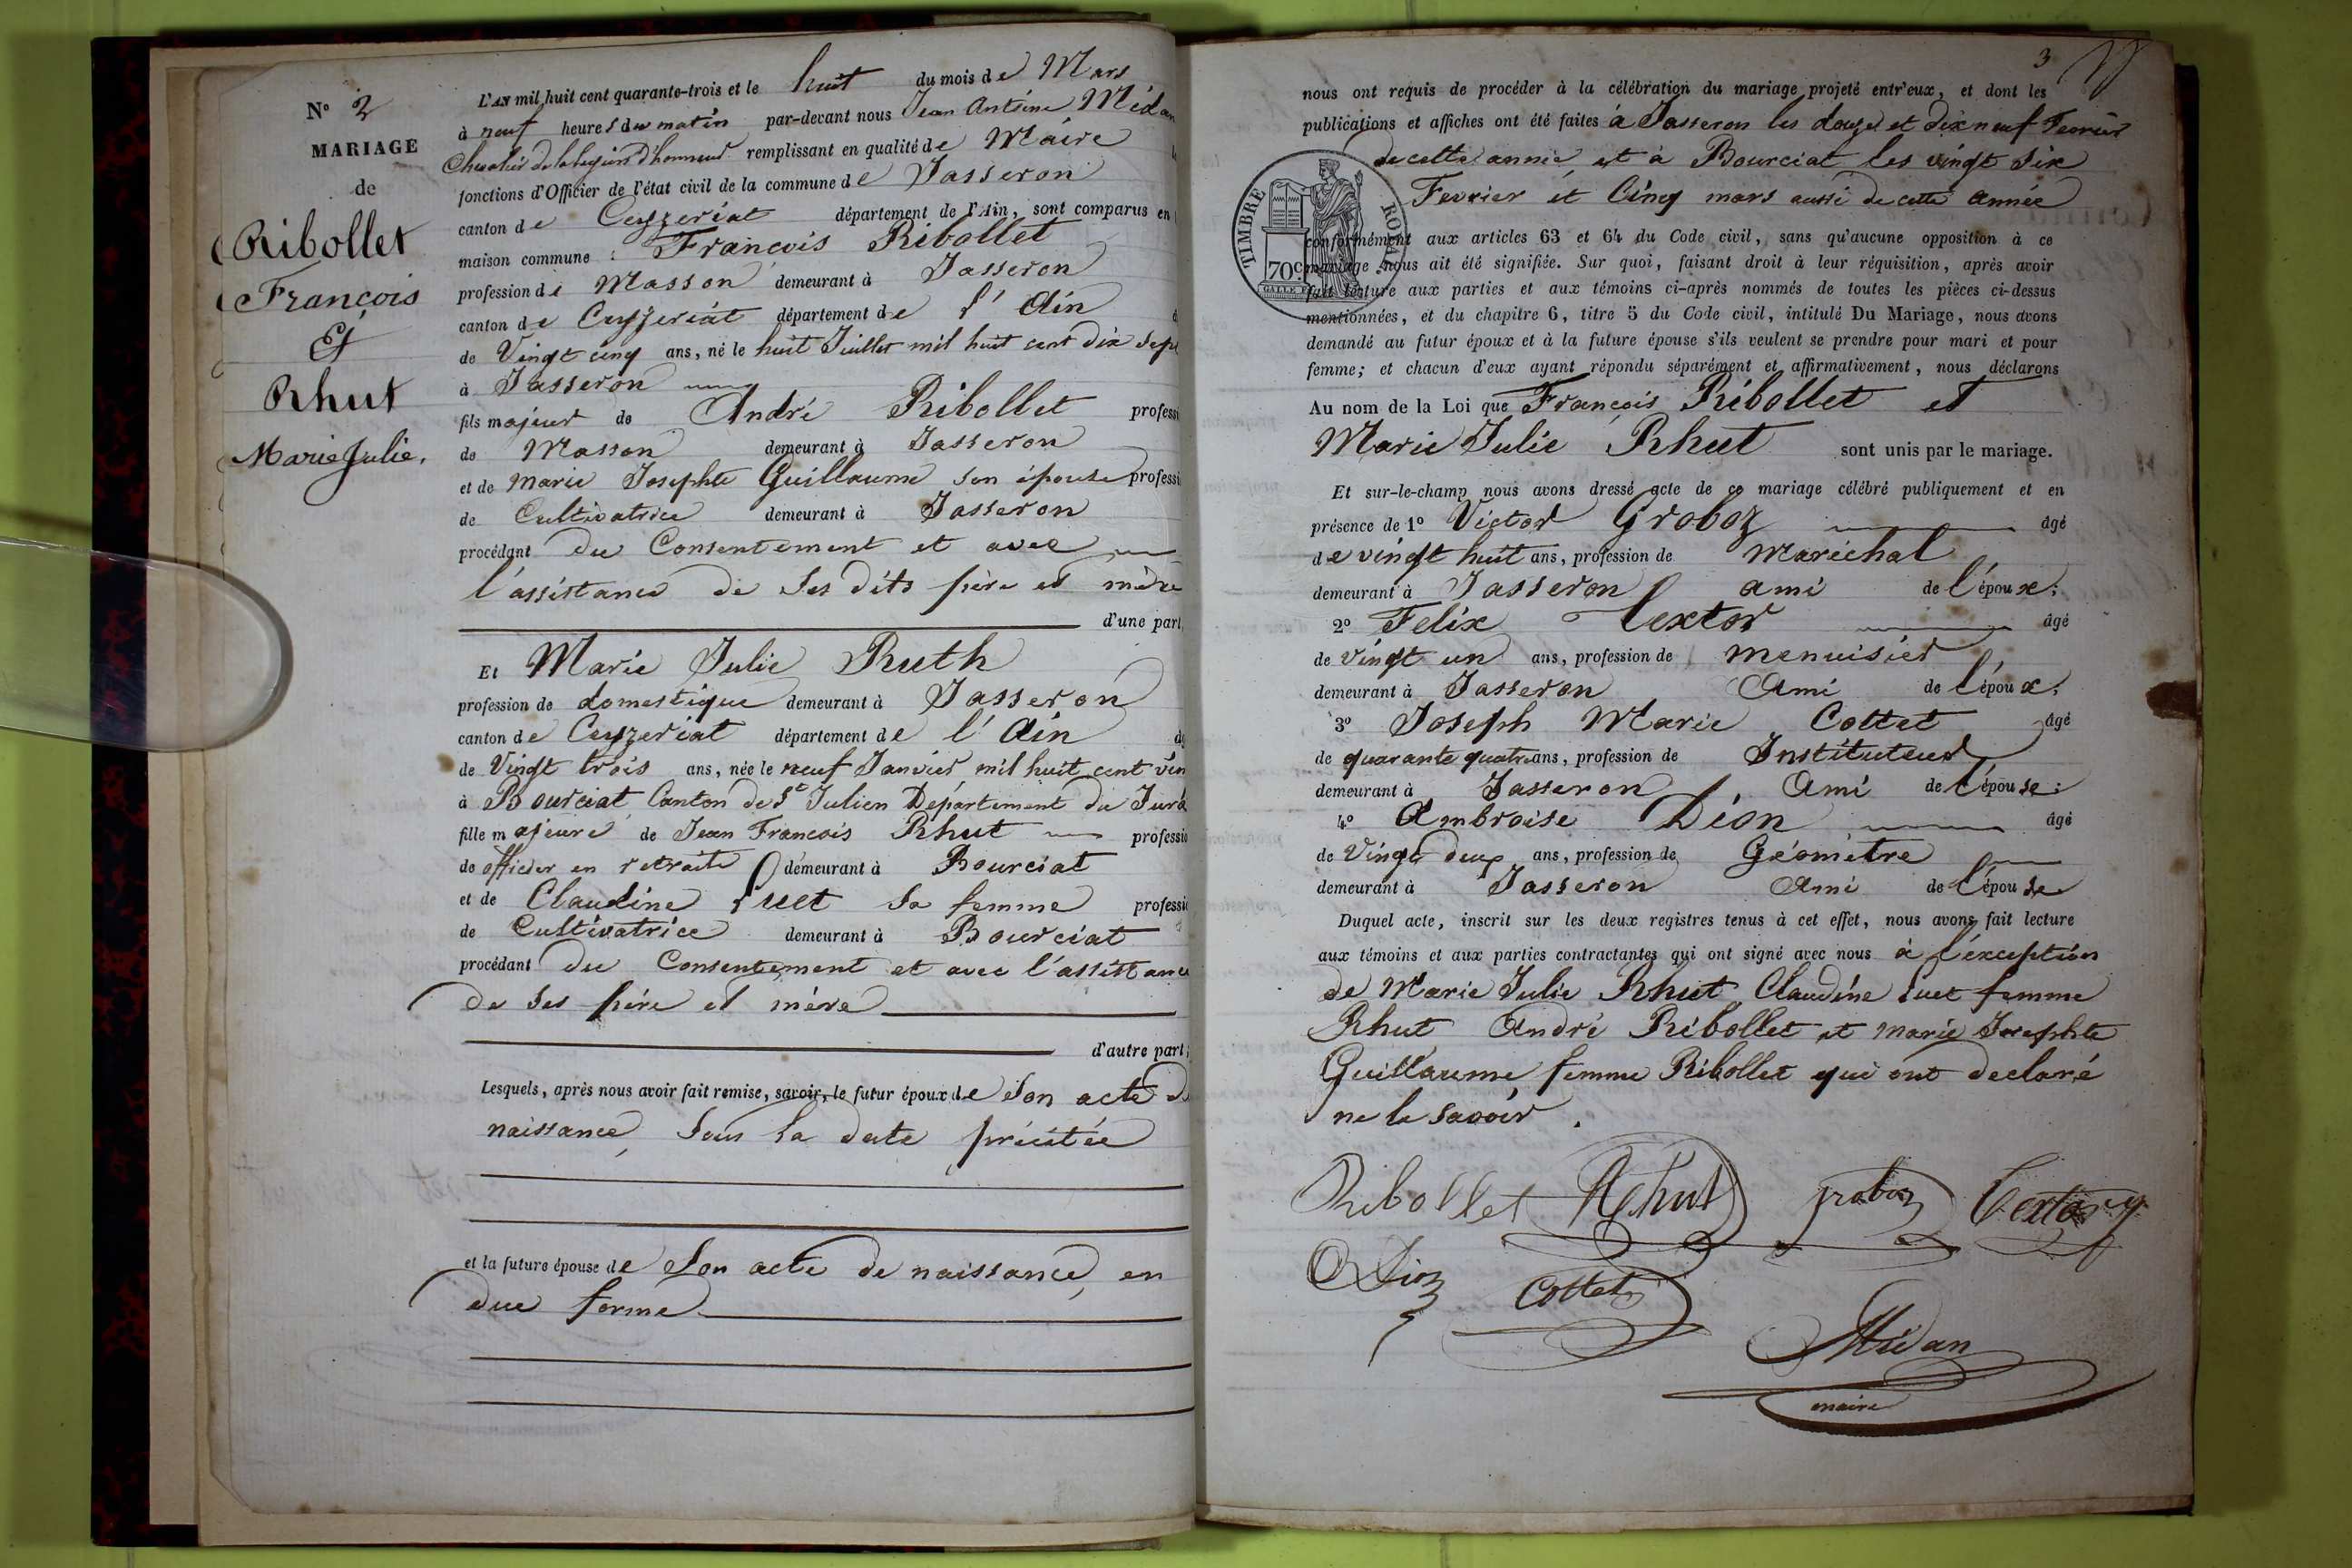 N° 2
MARIAGE
de
Ribollet
François
Et
Rhut
Marie Julie.
L'AN mil huit cent quarante-trois et le huit du mois de Mars
à neuf heures du matin par-devant nous Jean Antoine Midan
Chevalier de la legion d'honneur remplissant en qualité de Maire
fonctions d'Officier de l'état civil de la commune de Jasseron
canton de Ceyzeriat département de l'Ain, sont comparus en
maison commune : François Ribollet
profession de Masson demeurant à Jasseron
canton de Ceyzeriat département de l'Ain
de Vingt cinq ans, né le huit Juillet mil huit cent dix sept
à Jasseron
fils majeur de André Ribollet professi
de Masson demeurant à Jasseron
et de marie Josephte Guillaume son épouse professi
de Cultivatrice demeurant à Jasseron
procédant du Consentement et avec
l'assistance de ses dits père et mère
d'une part,
Et Marie Julie Ruth
profession de domestique demeurant à Jasseron
canton de Ceyzeriat département de l'Ain âg
de Vingt trois ans, née le neuf Janvier mil huit cent vin
à Bourciat Canton de St Julien Département du Jura
fille majeure de Jean François Rhut professio
de officier en retraite demeurant à Bourciat
et de Claudine Suet sa femme professio
de Cultivatrice demeurant à Bourciat
procédant du Consentement et avec l'assistance
de ses père et mère
d'autre part;
Lesquels, après nous avoir fait remise, savoir, le futur époux de son acte de
naissance, sous la date précitée
et la future épouse de son acte de naissance, en
due forme
3
nous ont requis de procéder à la célébration du mariage projeté entr'eux, et dont les
publications et affiches ont été faites à Jasseron les douze et dix neuf Fevrier
de cette année, et à Bourciat les vingt six
Fevrier et Cinq mars aussi de cette année
TIMBRE ROYAL
70c
conformément aux articles 63 et 64 du Code civil, sans qu'aucune opposition à ce
mariage nous ait été signifiée. Sur quoi, faisant droit à leur réquisition, après avoir
fait lecture aux parties et aux témoins ci-après nommés de toutes les pièces ci-dessus
mentionnées, et du chapitre 6, titre 5 du Code civil, intitulé Du Mariage, nous avons
demandé au futur époux et à la future épouse s'ils veulent se prendre pour mari et pour
femme; et chacun d'eux ayant répondu séparément et affirmativement, nous déclarons
Au nom de la Loi que François Ribollet et
Marie Julie Rhut sont unis par le mariage.
Et sur-le-champ nous avons dressé acte de ce mariage célébré publiquement et en
présence de 1° Victor Groboz âgé
de vingt huit ans, profession de Maréchal
demeurant à Jasseron ami de l'époux;
2° Felix Textor âgé
de Vingt un ans, profession de menuisier
demeurant à Jasseron Ami de l'époux;
3° Joseph Marie Cottet âgé
de quarante quatre ans, profession de Instituteur
demeurant à Jasseron Ami de l'épouse;
4° Ambroise Dion âgé
de Vingt deux ans, profession de Géometre
demeurant à Jasseron Ami de l'épouse
Duquel acte, inscrit sur les deux registres tenus à cet effet, nous avons fait lecture
aux témoins et aux parties contractantes qui ont signé avec nous à l'exception
de Marie Julie Rhut Claudine Suet femme
Rhut André Ribollet et marie Josephte
Guillaume femme Ribollet qui ont declaré
ne le savoir.
Ribollet Rhut groboz Textor
A Dion Cottet
Midan
maire